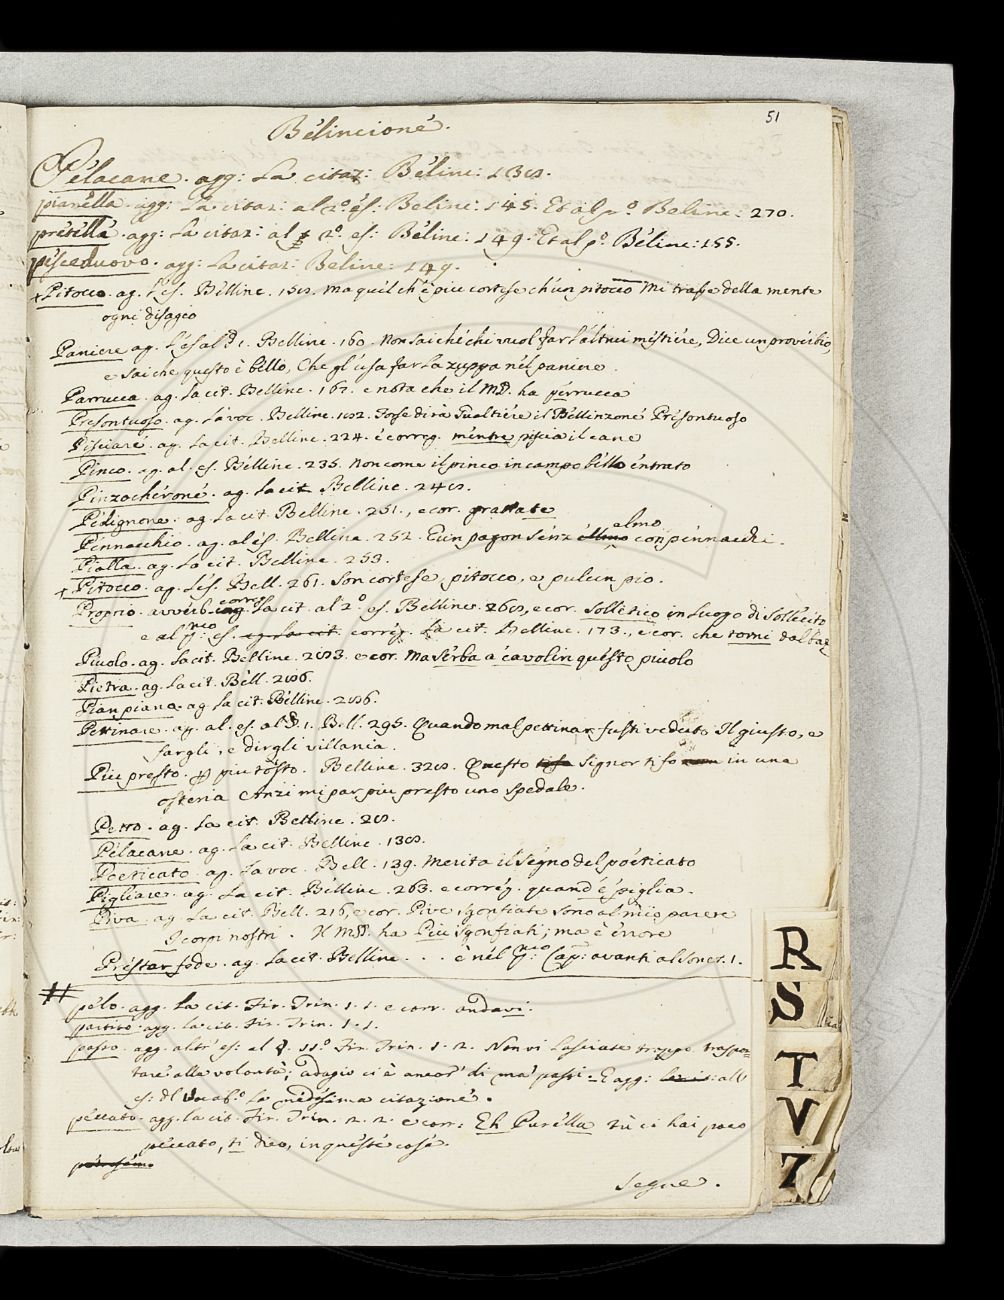 51
Bélincioné.
Pélacane. agg: La citaz: Béline: 130.
pianélla. agg: La citaz: al 2º. és: Beline: 145. Et al pº Beline: 270.
prétélla. agg: La citaz: al 2º. es: Béline: 149. Et al pº. Béline: 155.
pésceduovo. agg: La citaz: Beline: 149.
+ Pitocco. ag. l'es. Bélline. Ma quél ch'è piu cortese ch'un pitocco Mi trasse della mente
ogni disagio
Paniere ag. l'és al § 1. Belline. 160. Non sai ché chi vuol far l'altrui mestiére, Dice un provérbio,
e sai che questo è béllo, Che gl'usa far la zuppa nél paniere.
Parrucca. ag. la cit. Belline. 162. e nota che il MS. ha pérrucca
Présontuoso. ag. la voc. Belline. Forse dirà Gualtiére il Béllinzoné Présontuoso
Pisciaré. ag. la cit. Belline. 224. e correg. méntre piscia il cane
Pinco. ag. al. es. Bélline. 235. Non come il pinco in campo béllo éntrato
Pinzochéroné. ag. la cit. Belline. 240.
Pédignone. ag. la cit. Belline. 251., e cor. grattate
Pénnacchio. ag. al és. Belline. 252. E un pagon sénz' elmo con pénnacchi.
Pialla. ag. la cit. Belline. 253.
+ Pitocco. ag. l'és. Bell. 261. Son cortese, pitocco, e pulcin pio.
Proprio. avvérb. correg. la cit. al 2º. es. Belline. 260, e cor. sollético in luogo di Sollécito
e al pmo. es. corrég. la cit. Belline. 173., e cor. che torni
Picuolo. ag. la cit. Belline. 203. e cor. Ma sérba a cavolin quésto picuolo
Pietra. ag. la cit. Béll. 206.
Pian piano. ag. la cit. Bélline. 206.
Péttinare. ag. al. es. al § 1. Bell. 295. Quando mal pettinar fusti veduto Il giusto, e
fargli, e dirgli villania.
Piu presto. p piu tosto. Belline. 320. Questo Signor ti fo in una
osteria Anzi mi par piu presto uno spedale.
Petto. ag. la cit. Belline. 20.
Pélacane. ag. la cit. Belline. 130.
Poeticato. ag. la voc. Bell. 139. Merita il ségno del poéticato
Pigliare. ag. la cit. Bélline. 263. e corrég. quand' é' piglia.
Piva. ag. la cit. Bell. 216, e cor. Pive sgonfiate sono al mio parere
I corpi nostri. Il MS. ha Piu sgonfiati; ma è érrore
Préstar fede. ag. la cit. Belline. . . . è nél pmo. Cap: avanti al Sonet. 1.
#
pélo. agg. la cit. Fir. Trin. 1. 1. e corr. andavi.
partito. agg. la cit. Fir. Trin. 1. 1.
passo. agg. altr' es: al §. 11º. Fir. Trin. 1. 2. Non vi lasciate troppo traspor=
tare alla volontà; adagio ci è ancor' di ma' passi. = E agg: all'
es: dl vocabº. la médésima citazioné.
péccato. agg. la cit. Fir. Trin. 2. 2. e corr: Eh Purélla tù ci hai poco
péccato, ti dico, in quésté cosé.
Segue.
R
S
T
V
Z